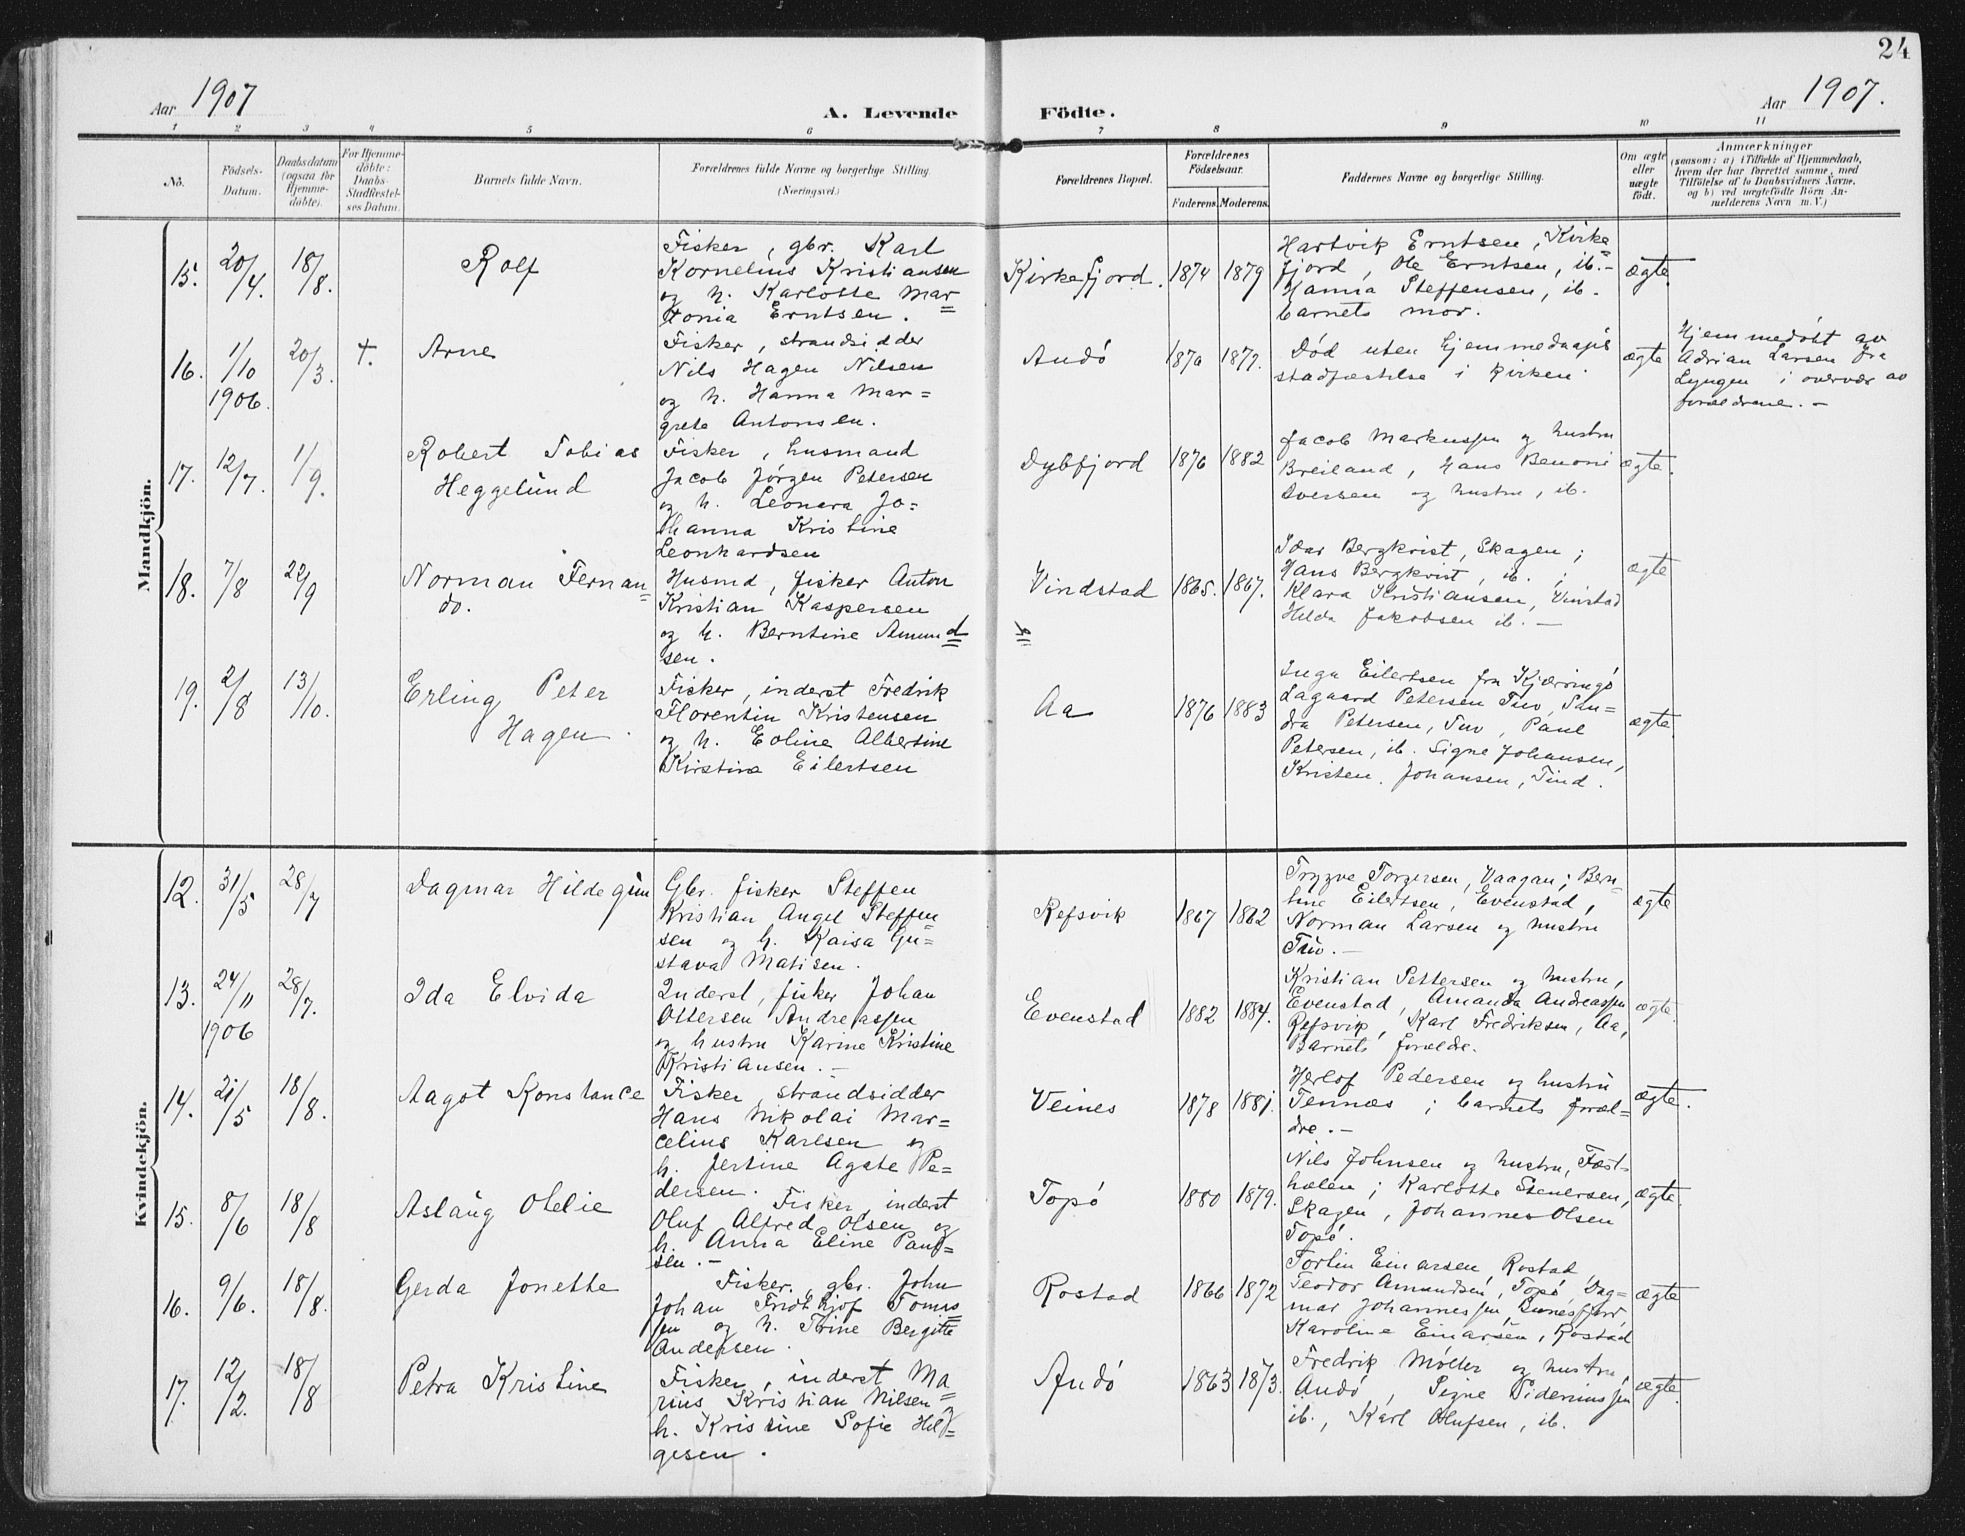 24
Aar 1907
A. Levende Födte.
Aar 1907.
1 2 3 4 5 6 7 8 9 10 11
No.
Födsels-
Datum.
Daabsdatum
(ogsaa for
Hjemme-
döbte).
For Hjemme-
döbte:
Daabs-
Stadfæstel-
ses Datum.
Barnets fulde Navn.
Forældrenes fulde Navne og borgerlige Stilling
(Næringsvei.)
Forældrenes Bopæl.
Forældrenes
Födselsaar.
Faderens. Moderens.
Faddernes Navne og borgerlige Stilling.
Om ægte
eller
uægte
födt.
Anmærkninger
(saasom: a) i Tilfælde af Hjemmedaab,
hvem der har forrettet samme, med
Tilföielse af to Daabsvidners Navne,
og b) ved uægtefödte Börn An-
melderens Navn m. V.)
Mandkjön.
15. 20/4. 18/8.
Rolf
Fisker, gbr. Karl
Kornelius Kristiansen
og h. Karlotte Mar=
tonia Erntsen.
Kirkefjord. 1874 1879
Hartvik Erntsen, Kirke=
fjord, Ole Erntsen, ib.-
Hanna Steffensen, ib.
barnets mor.
ægte
16. 1/10 1906. 20/3. +.
Arne
Fisker, strandsidder
Nils Hagen Nilsen
og h. Hanna Mar=
grete Antonsen.
Andö 1870 1877.
Död uten hjemmedaaps
stadfæstelse i kirken.
ægte
Hjemmedöbt av
Adrian Larsen fra
Lyngen i overvær av
forældrene. -
17. 12/7. 1/9.
Robert Tobias
Heggelund
Fisker, husmand
Jacob Jørgen Petersen
og h. Leonara Jo=
hanna Kristine
Leonhardsen
Dybfjord 1876 1882
Jacob Markussen og hustru
Breiland, Hans Benoni
Iversen og hustru, ib.
ægte.
18. 7/8 22/9
Norman Fernan=
do.
Husmd, fisker Anton
Kristian Kaspersen
og h. Berntine Amund=
sen.
Vindstad 1865. 1867.
Ivar Bergkvist, Skagen;
Hans Bergkvist, ib.;
Klara Kristiansen, Vinstad
Hilda Jakobsen ib. -
ægte
19. 2/8 13/10.
Erling Peter
Hagen.
Fisker, inderst Fredrik
Florentin Kristensen
og h. Eoline Albertine
Kirstine Eilertsen
Aa 1876 1883
Inga Eilertsen fra Kjærringö
Lagaard Petersen Tuv, San=
dra Petersen, Tuv, Paul
Petersen, ib. Signe Johansen,
Kristen. Johansen, Tind.
ægte
Kvindekjön.
12. 31/5 28/7
Dagmar Hildegün
Gbr. fisker Steffen
Kristian Angel Steffen=
sen og h. Kaisa Gu=
stava Matisen.
Refsvik 1867 1862
Trygve Torgersen, Vaagan; Bern=
tine Eilertsen, Evenstad,
Norman Larsen og hustru
Tuv. -
ægte
13. 24/11 1906 28/7.
Ida Elvida
Inderst, fisker Johan
Ottersen Andreassen
og hustru Karine Kristine
Kristiansen. -
Evenstad 1882 1884.
Kristian Pettersen og hustru,
Evenstad, Amanda Andreassen
Refsvik, Karl Fredriksen, Aa,
Barnets forældre.
ægte.
14. 21/5 18/8.
Aagot Konstance
Fisker, strandsidder
Hans Nikolai Mar=
celius Karlsen og
h. Jertine Agate Pe=
dersen.
Veines 1878 1881.
Herlof Pedersen og hustru
Tennæs; barnets foræl=
dre. -
ægte.
15. 8/6 18/8
Aslaug Otelie
Fisker, inderst
Oluf Alfred Olsen og
h. Anna Eline Paul=
sen. -
Topö 1880 1879.
Nils Johnsen og hustru, Fæst=
hælen; Karlotte Stenersen,
Skagen, Johannes Olsen
Topö.
ægte.
16. 9/6. 18/8.
Gerda Jonette
Fisker, gbr. John
Johan Fridthjof Tomas=
sen og h. Trine Bergitte
Andersen.
Rostad 1866 1872
Torlin Einarsen Rostad
Teodor Amundsen, Topö, Dag=
mar Johannessen, Bunesfjord,
Karoline Einarsen, Rostad
ægte
17. 12/2. 18/8
Petra Kristine
Fisker, inderst Ma=
rius Kristian Nilsen og
h. Kristine Sofie Hel=
gesen.
Andö 1863 1873.
Fredrik Möller og hustru,
Andö, Signe Sideniussen
ib., Karl Olufsen, ib.
ægte.